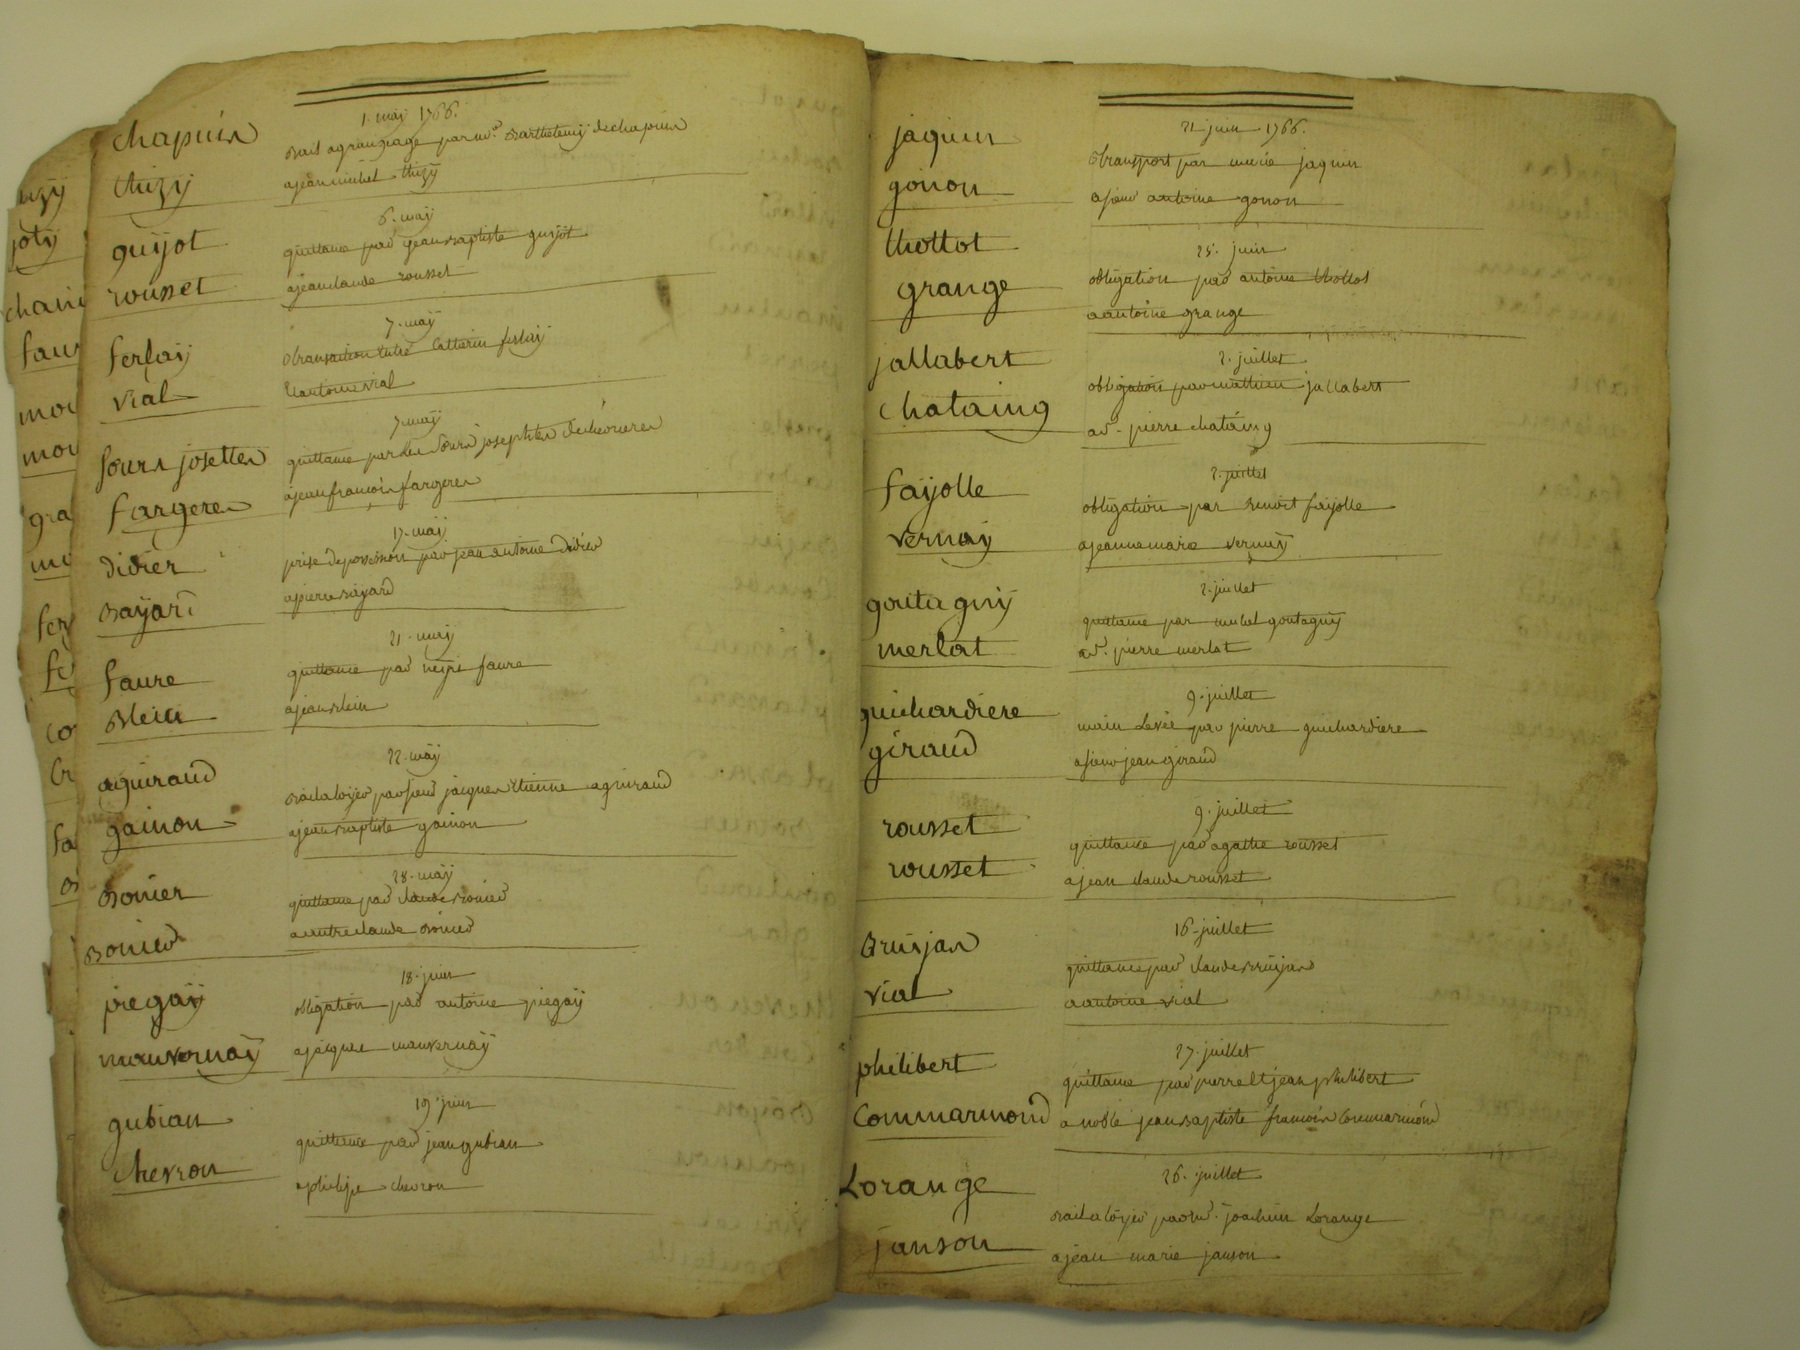 1. may 1766.
chapuis
Bail a grangeage par mr. Barthelemy de chapuis
thizy
a jean michel thizy
6. may
guyot
quittance par jean Baptiste guyot
rousset
a jean claude rousset
7. may
ferlay
transaction entre Catterin ferlay
vial
Et antoine vial
7. may
sœurs josettes
quittance par les sœurs josephtes
fargeres
a jean francois fargeres
17. may
didier
prise de possession par jean antoine didier
Bayard
a pierre Bayard
21. may
faure
quittance par faure
Blein
a jean Blein
22. may
aguiraud
Bail a loyer par sieur jacques Etienne aguiraud
gainon
a jean Baptiste gainon
28. may
Bonier
quittance par claude Bonier
Bonier
a autre claude Bonier
18. juin
piegay
obligation par antoine piegay
mauvernay
a jacques mauvernay
19. juin
gubian
quittance par jean gubian
chevron
a philipe chevron
nzy
joty
chani
faur
mou
mou
gra
fer
fe
co
fa
21. juin 1766.
jaquin
transport par jaquin
gonon
a sieur antoine gonon
25. juin
thollot
obligation par antoine thollot
grange
a antoine grange
2. juillet
jallabert
obligation par mathieu jallabert
chataing
a sr. pierre chataing
2. juillet
fayolle
obligation par Benoit fayolle
vernay
a jeanne marie vernay
2. juillet
goutagny
quittance par michel goutagny
merlat
a sr. pierre merlat
9. juillet
guichardiere
main Levée par pierre guichardiere
giraud
a sieur jean giraud
9. juillet
rousset
quittance par agathe rousset
rousset
a jean claude rousset
16. juillet
Brusjas
quittance par claude Brusjas
vial
a antoine vial
27. juillet
philibert
quittance par pierre Et jean philibert
Commarmond
a noble jean Baptiste francois Commarmond
26. juillet
Lorange
Bail a loyer par mr. joachim Lorange
janson
a jean marie janson